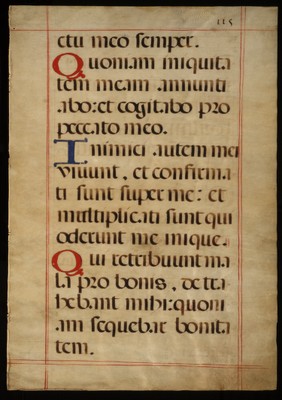 115
ctu meo semper.
Quoniam iniquita
tem meam annunti
abo: et cogitabo pro
peccato meo.
Inimici autem mei
viuunt, et confirma
ti sunt super me: et
multiplicati sunt qui
oderunt me inique.
Qui retribuunt ma
la pro bonis, detra
hebant mihi: quoni
am sequebar bonita
tem.